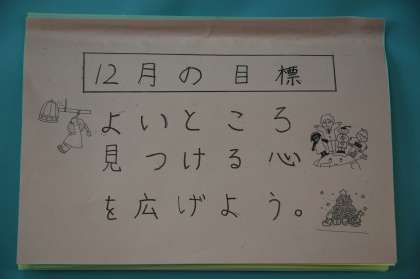 12月の目標
よいところ
見つける心
を広げよう。